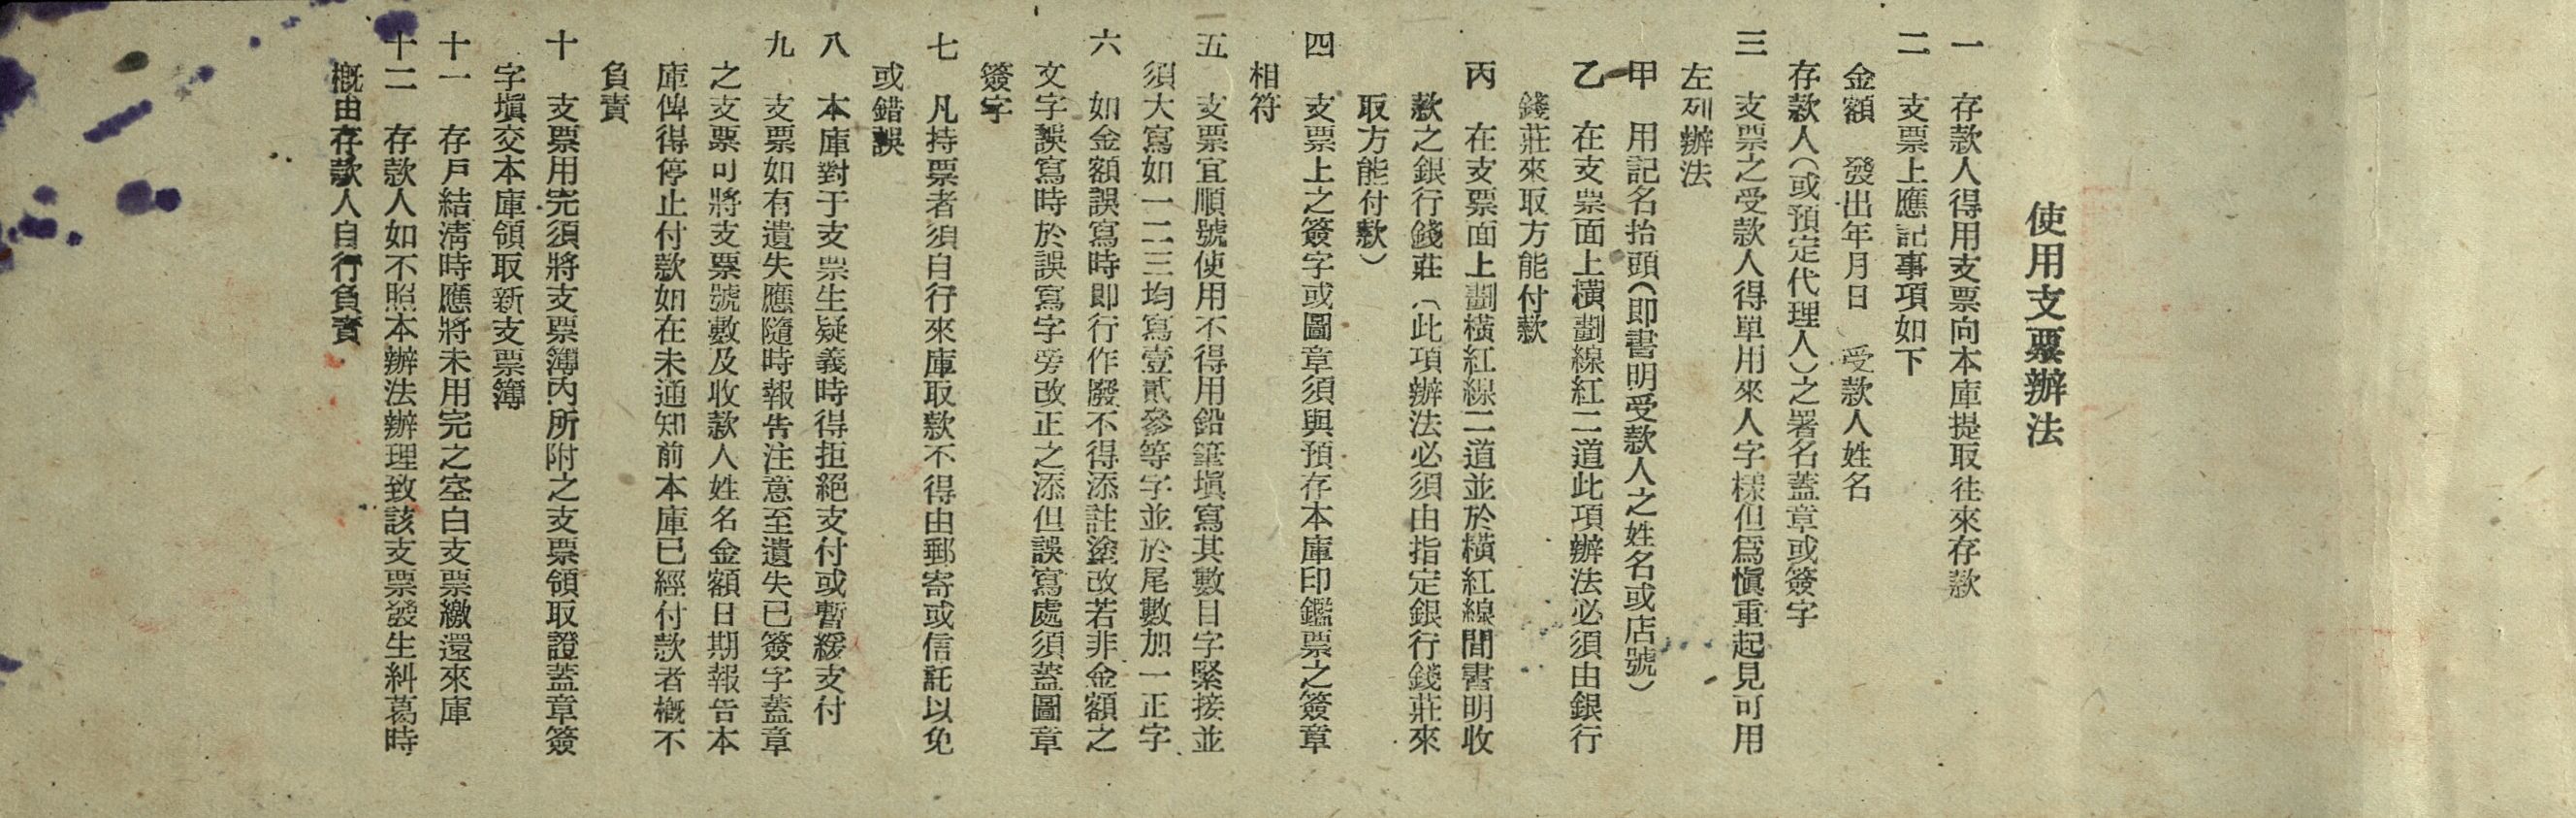 使用支票辦法
一　存款人得用支票向本庫提取往來存款
二　支票上應記事項如下
金額　發出年月日　受款人姓名
存款人（或預定代理人）之署名蓋章或簽字
三　支票之受款人得單用來人字樣但爲愼重起見可用
左列辦法
甲　用記名抬頭（即書明受款人之姓名或店號）
乙　在支票面上橫劃線紅二道此項辦法必須由銀行
錢莊來取方能付款
丙　在支票面上劃橫紅線二道並於橫紅線間書明收
款之銀行錢莊（此項辦法必須由指定銀行錢莊來
取方能付款）
四　支票上之簽字或圖章須與預存本庫印鑑票之簽章
相符
五　支票宜順號使用不得用鉛筆塡寫其數目字緊接並
須大寫如一二三均寫壹貳參等字並於尾數加一正字
六　如金額誤寫時即行作廢不得添註塗改若非金額之
文字誤寫時於誤寫字旁改正之添但誤寫處須蓋圖章
簽字
七　凡持票者須自行來庫取款不得由郵寄或信託以免
或錯誤
八　本庫對于支票生疑義時得拒絕支付或暫緩支付
九　支票如有遺失應隨時報告注意至遺失已簽字蓋章
之支票可將支票號數及收款人姓名金額日期報告本
庫俾得停止付款如在未通知前本庫已經付款者槪不
負責
十　支票用完須將支票簿內所附之支票領取證蓋章簽
字塡交本庫領取新支票簿
十一　存戶結淸時應將未用完之空白支票繳還來庫
十二　存款人如不照本辦法辦理致該支票發生糾葛時
槪由存款人自行負責